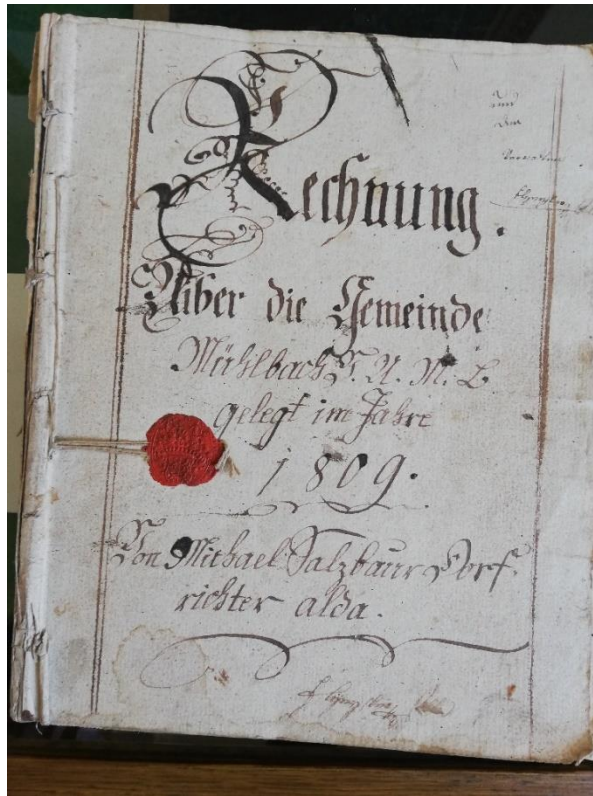 Rechnung.
Uiber die Gemeinde
Mühlbach V. U. M. B
gelegt im Jahre
1809.
Von Michael Salzbaur Dorf
richter alda.